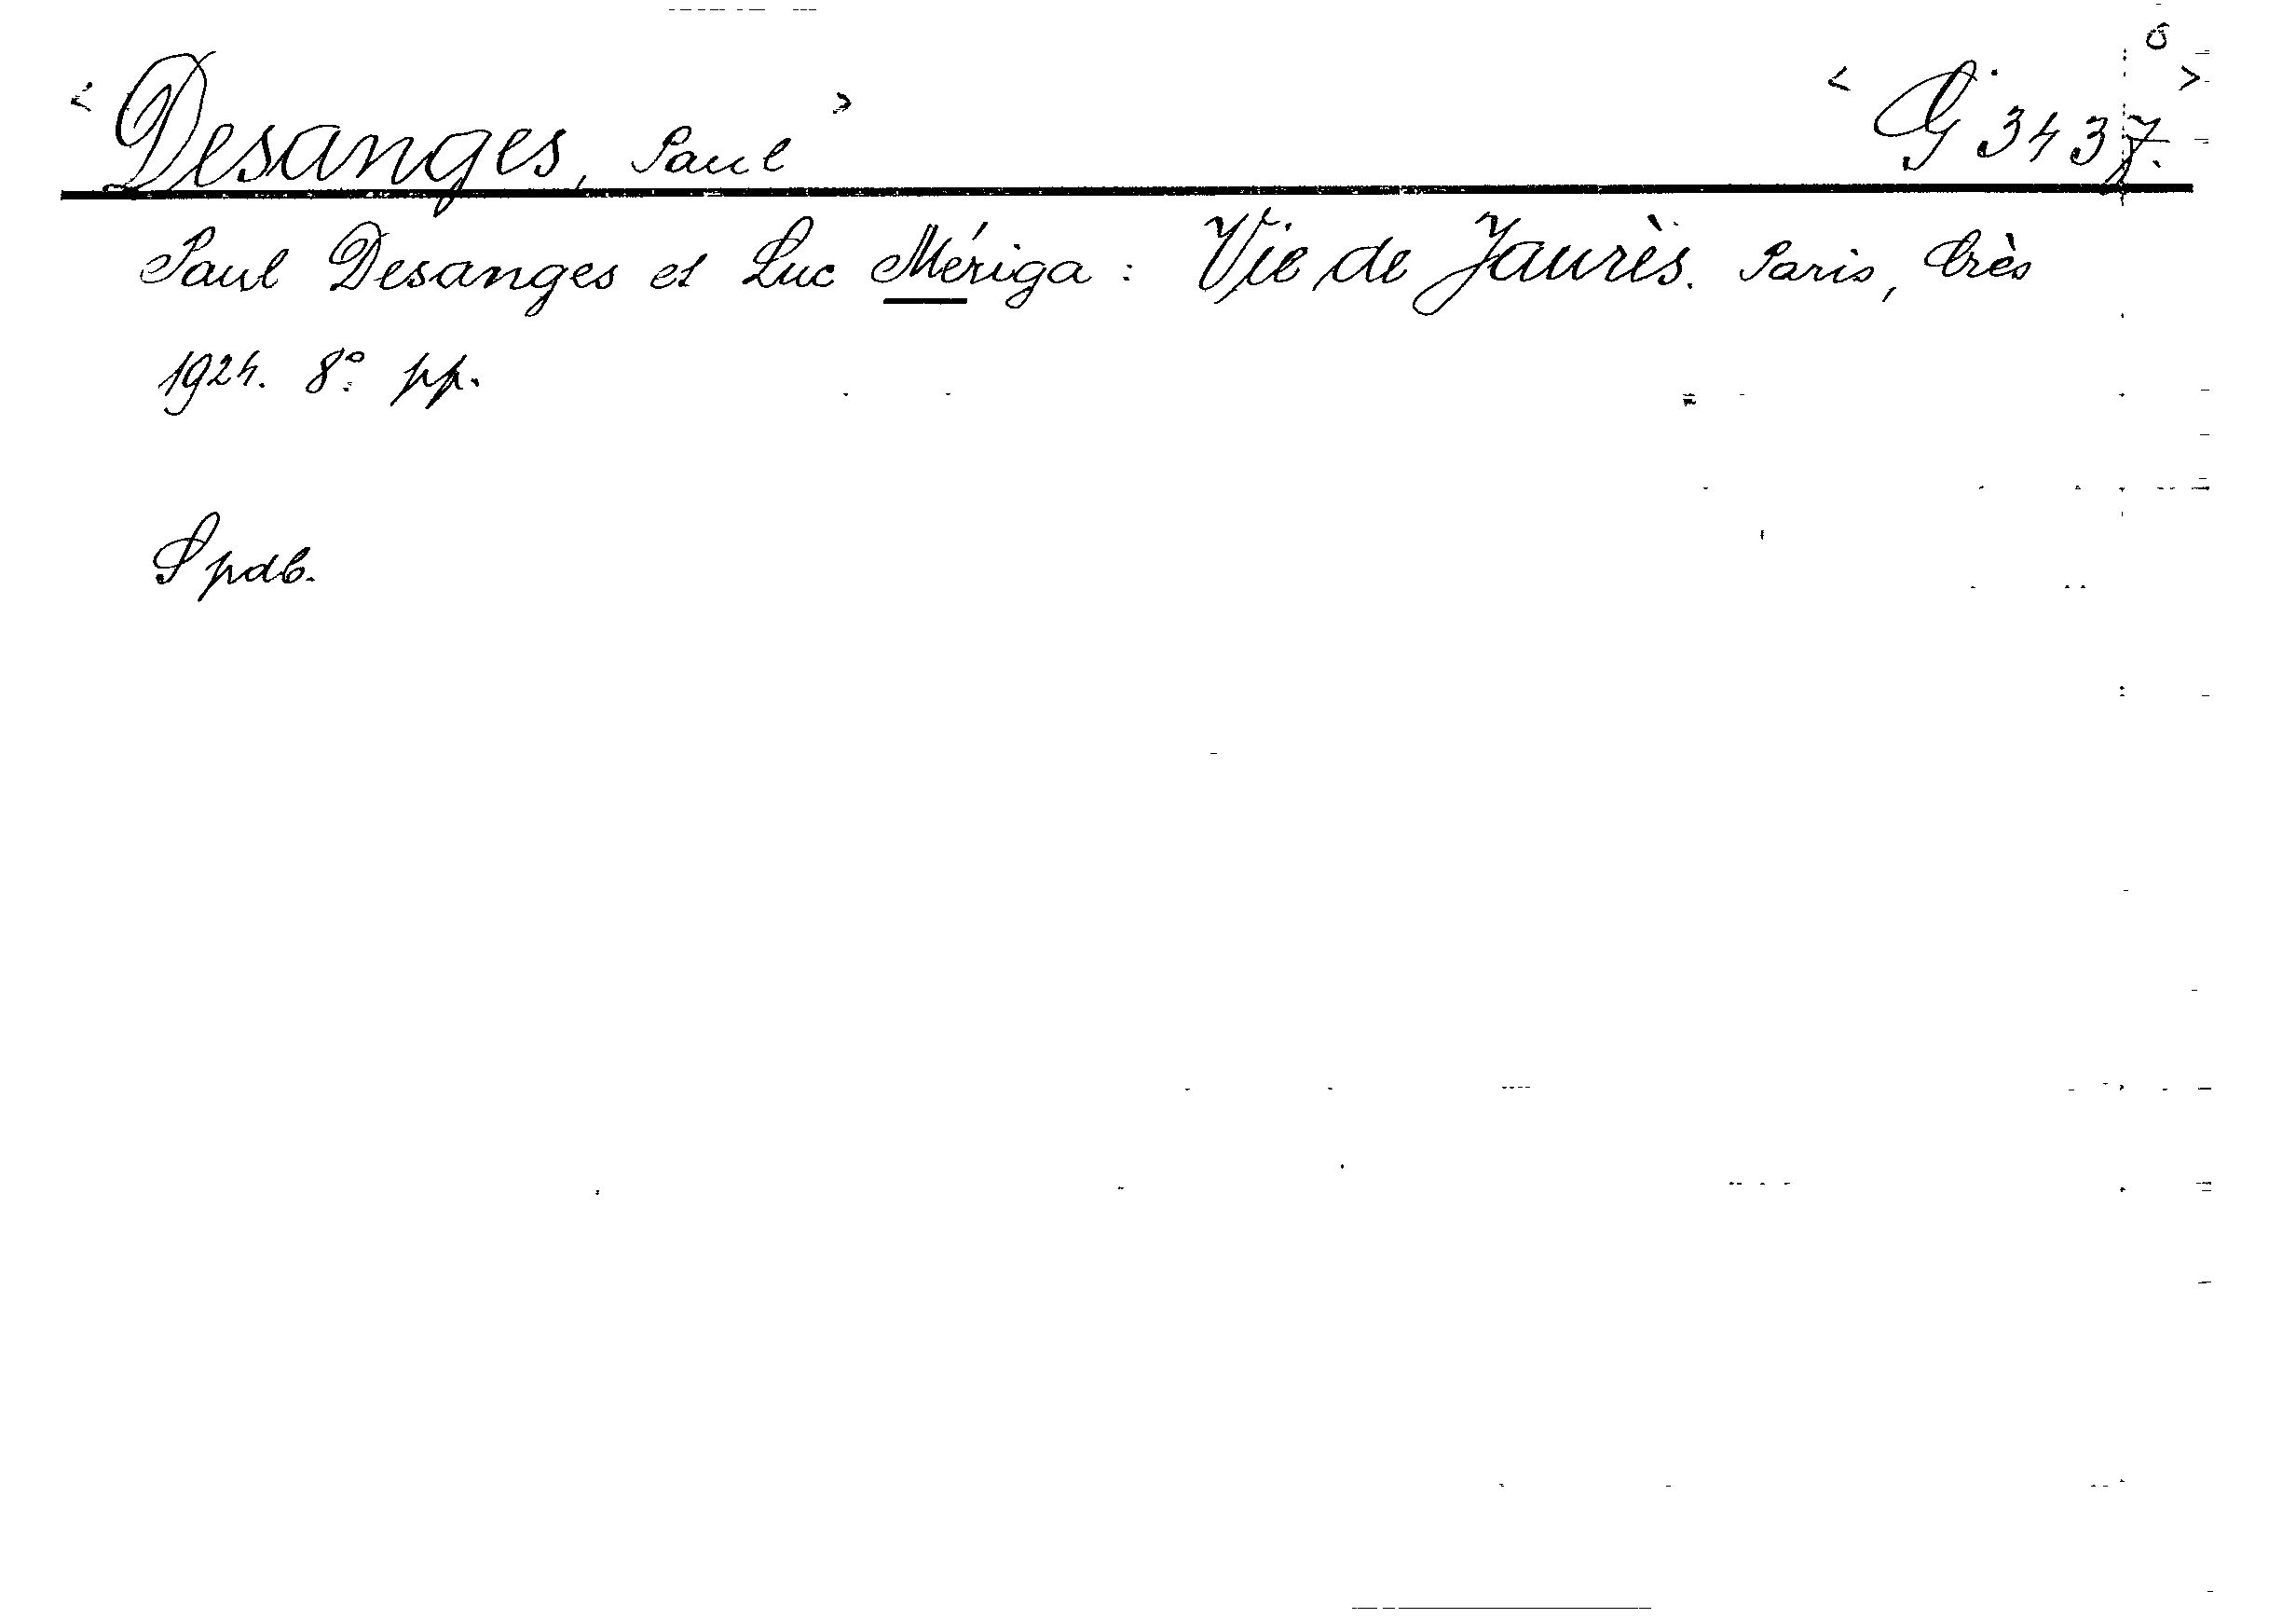 < Desanges, Paul > < G 3437. >
Paul Desanges et Luc Mériga: Vie de Jaurès. Paris, Crès
1924. 8° pp.
Spdb.